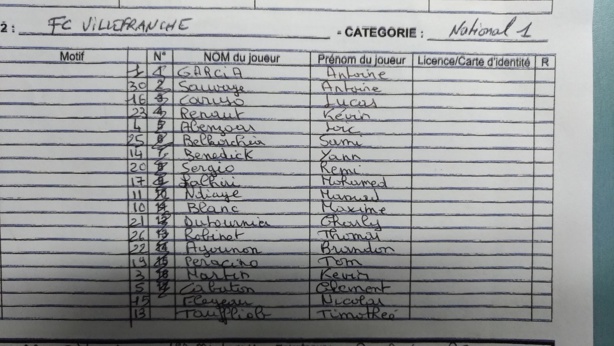 2 : FC VILLEFRANCHE - CATEGORIE : National 1
Motif N° NOM du joueur Prénom du joueur Licence/Carte d'identité R
1 GARCIA Antoine
30 Sauvage Antoine
16 Caruso Lucas
23 Renaut Kévin
4 Abenzoar Loïc
25 Belkorchia Sami
14 Benedick Yann
20 Sergio Remi
17 Mohamed
11 Ndiaye Mamad
10 Blanc Maxime
21 Dufournier Charly
26 Robinet Thomas
22 Ayounon Brandon
19 Peracino Tom
3 Martin Kevin
5 Cabaton Clement
15 Nicolas
13 Timothée